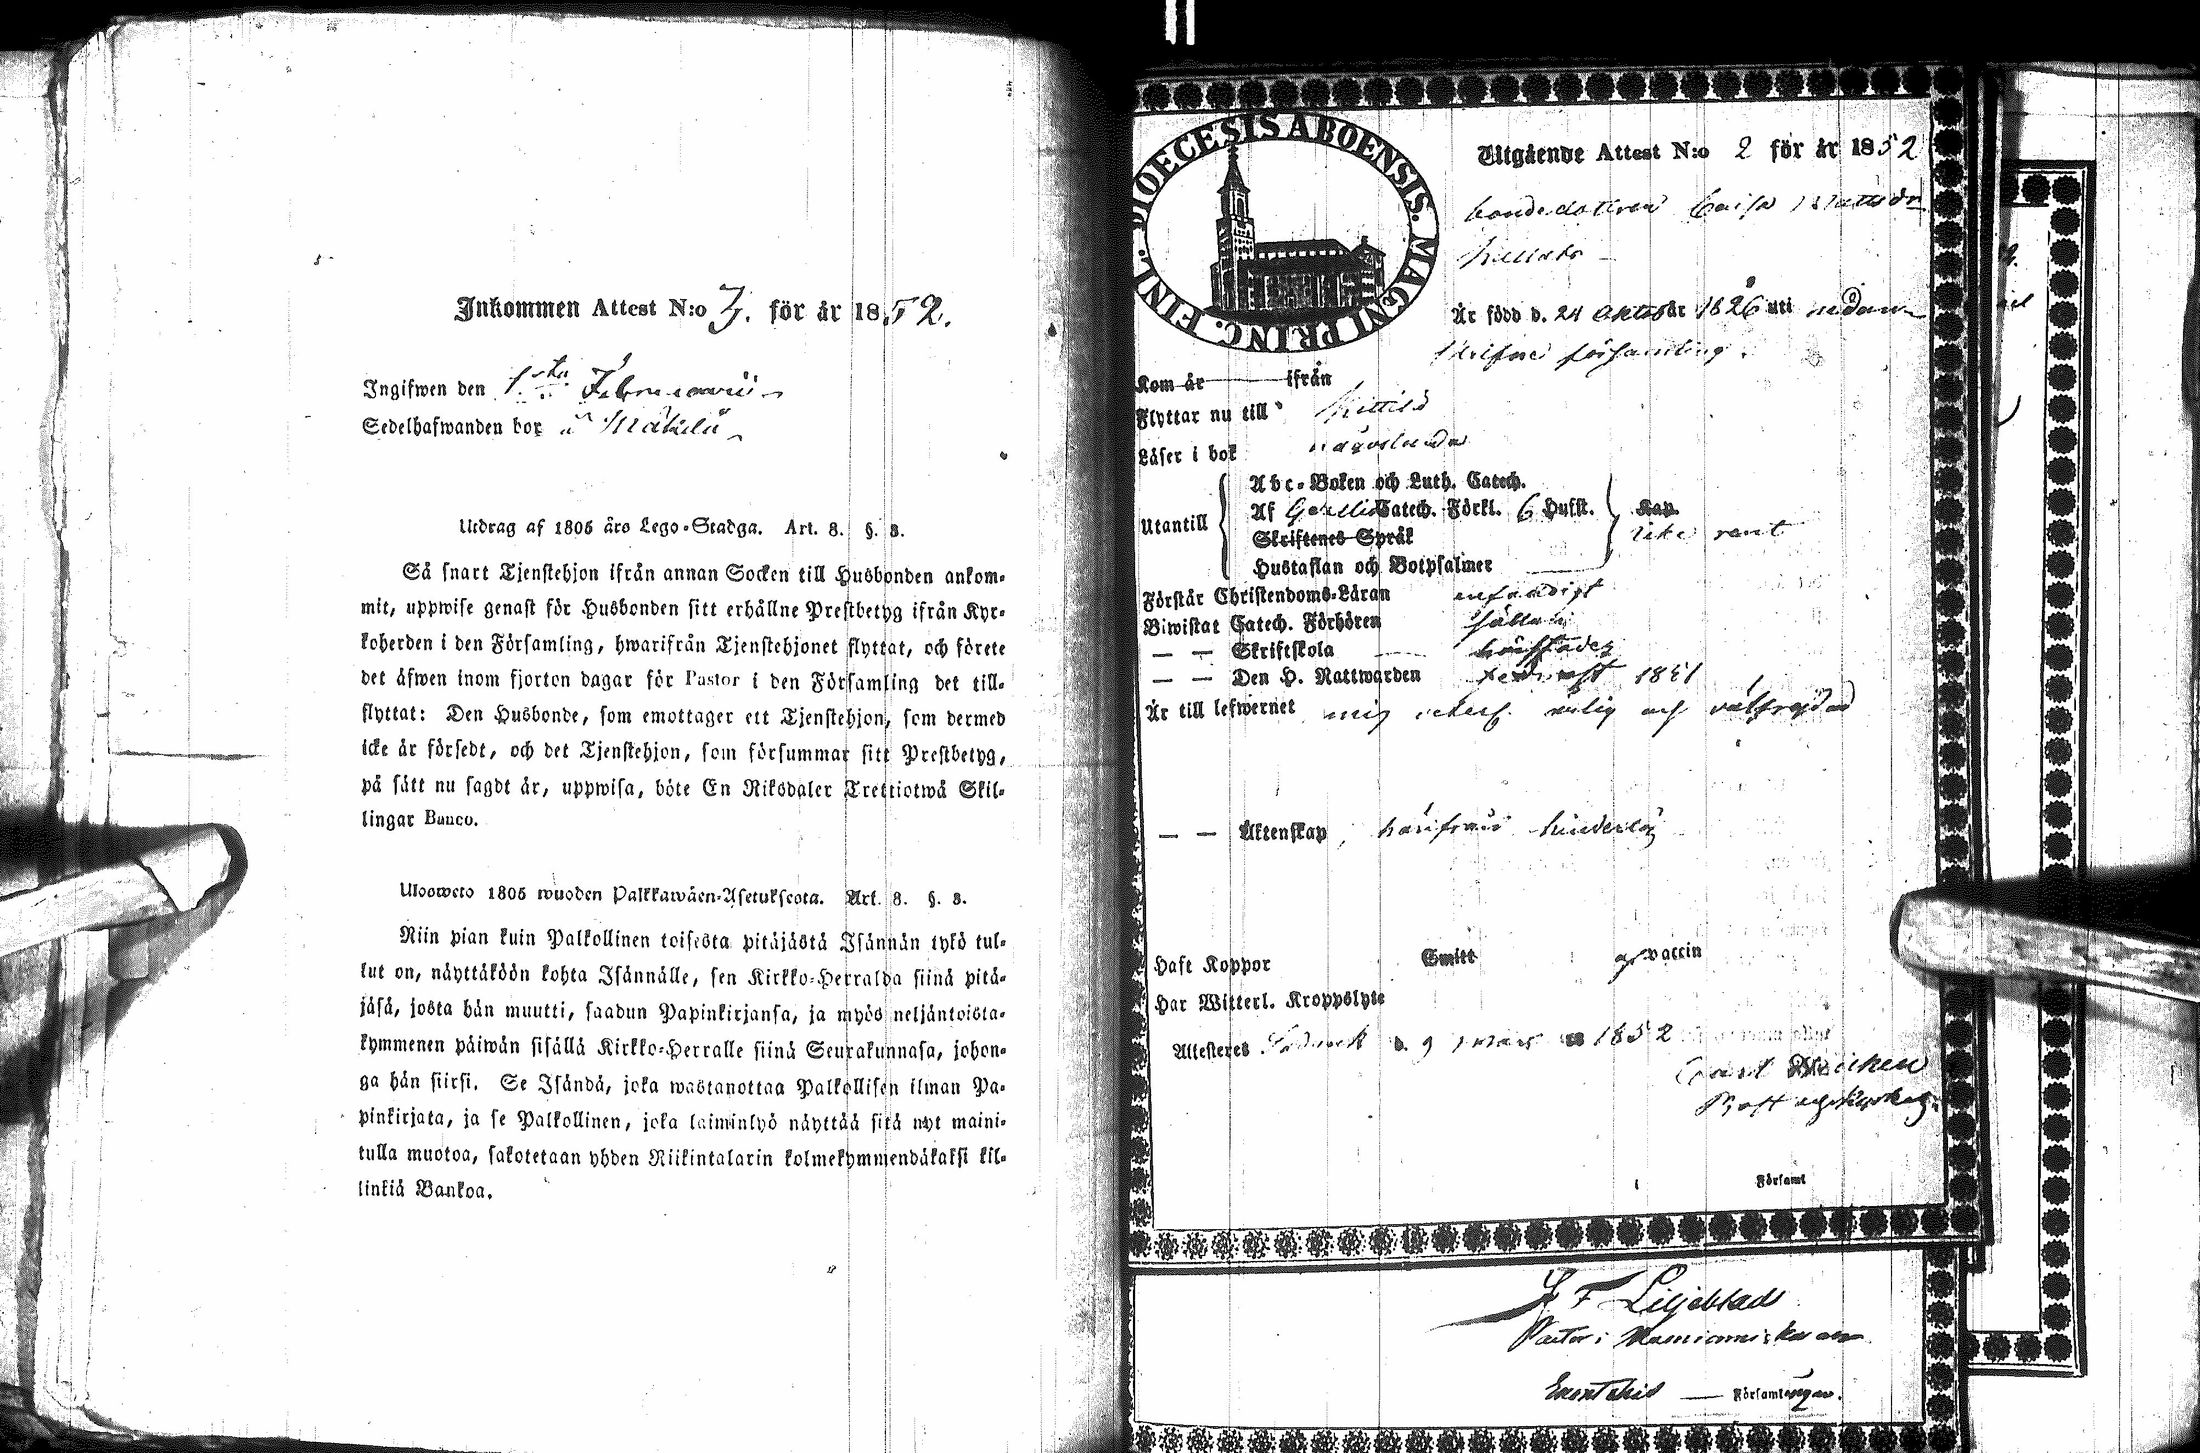 Inkommen Attest N:o 3. för år 1852.
Ingifwen den 1sta Februarii
Sedelhafwanden bor i
Utdrag af 1805 års Lego-Stadga. Art. 8. §. 8.
Så snart Tjenstehjon ifrån annan Socken till Husbonden ankom-
mit, uppwise genast för Husbonden sitt erhållne Prestbetyg ifrån Kyr-
koherden i den Församling, hwarifrån Tjenstehjonet flyttat, och förete
det äfwen inom fjorton dagar för Pastor i den Församling det till-
flyttat: Den Husbonde, som emottager ett Tjenstehjon, som dermed
icke är försedt, och det Tjenstehjon, som försummar sitt Prestbetyg,
på sätt nu sagdt är, uppwisa, böte En Riksdaler Trettiotwå Skil-
lingar Banco.
Ulosweto 1805 wuoden Palkkawäen-Asetuksesta. Art. 8. §. 8.
Niin pian kuin Palkollinen toisesta pitäjästä Isännän tykö tul-
lut on, näyttäköön kohta Isännälle, sen Kirkko-Herralda siinä pitä-
jäsä, josta hän muutti, saadun Papinkirjansa, ja myös neljäntoista-
kymmenen päiwän sisällä Kirkko-Herralle siinä Seurakunnasa, johon-
ga hän siirsi. Se Isändä, joka wastanottaa Palkollisen ilman Pa-
pinkirjata, ja se Palkollinen, joka laiminlyö näyttää sitä nyt maini-
tulla muotoa, sakotetaan yhden Riikintalarin kolmekymmendäkaksi kil-
linkiä Bankoa.
DIOECESIS ABOENSIS. MAGNI PRINC. FINL.
Utgående Attest N:o 2 för år 1852
bondedottren Caisa Mattsdr
Är född d. 24 Oktober år 1826 uti nedan-
skrifne församling.
Kom år ifrån
Flyttar nu till Kittilä
Läser i bok någorlunda
Utantill
Abc-Boken och Luth. Catech.
Af Catech. Förkl. 6 Hufst.
Skriftenes Språk
Hustaflan och Botpsalmer
Kap.
icke rent
Förstår Christendoms-Läran enfaldigt
Biwistat Catech. Förhören sällan
— — Skriftskola
— — Den H. Nattwarden 1851
Är till lefwernet och välfrejdad
— — Äktenskap, härifrån hinderlös
Haft Koppor Smitt vaccin
Har Witterl. Kroppslyte
Attesteras d. 9 mars 1852
Carl
Prost och Kyrkoh.
Församl
J F Liljeblad
Pastor i
Församlingen.